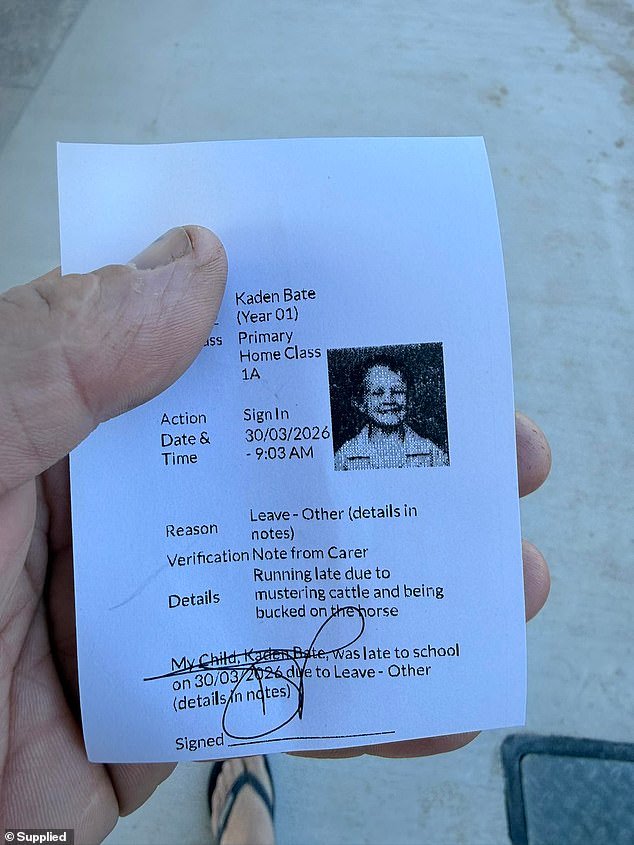 Kaden Bate
(Year 01)
ass Primary
Home Class
1A
Action Sign In
Date & 30/03/2026
Time - 9:03 AM
Reason Leave - Other (details in
notes)
Verification Note from Carer
Details Running late due to
mustering cattle and being
bucked on the horse
My Child, Kaden Bate, was late to school
on 30/03/2026 due to Leave - Other
(details in notes)
Signed
© Supplied